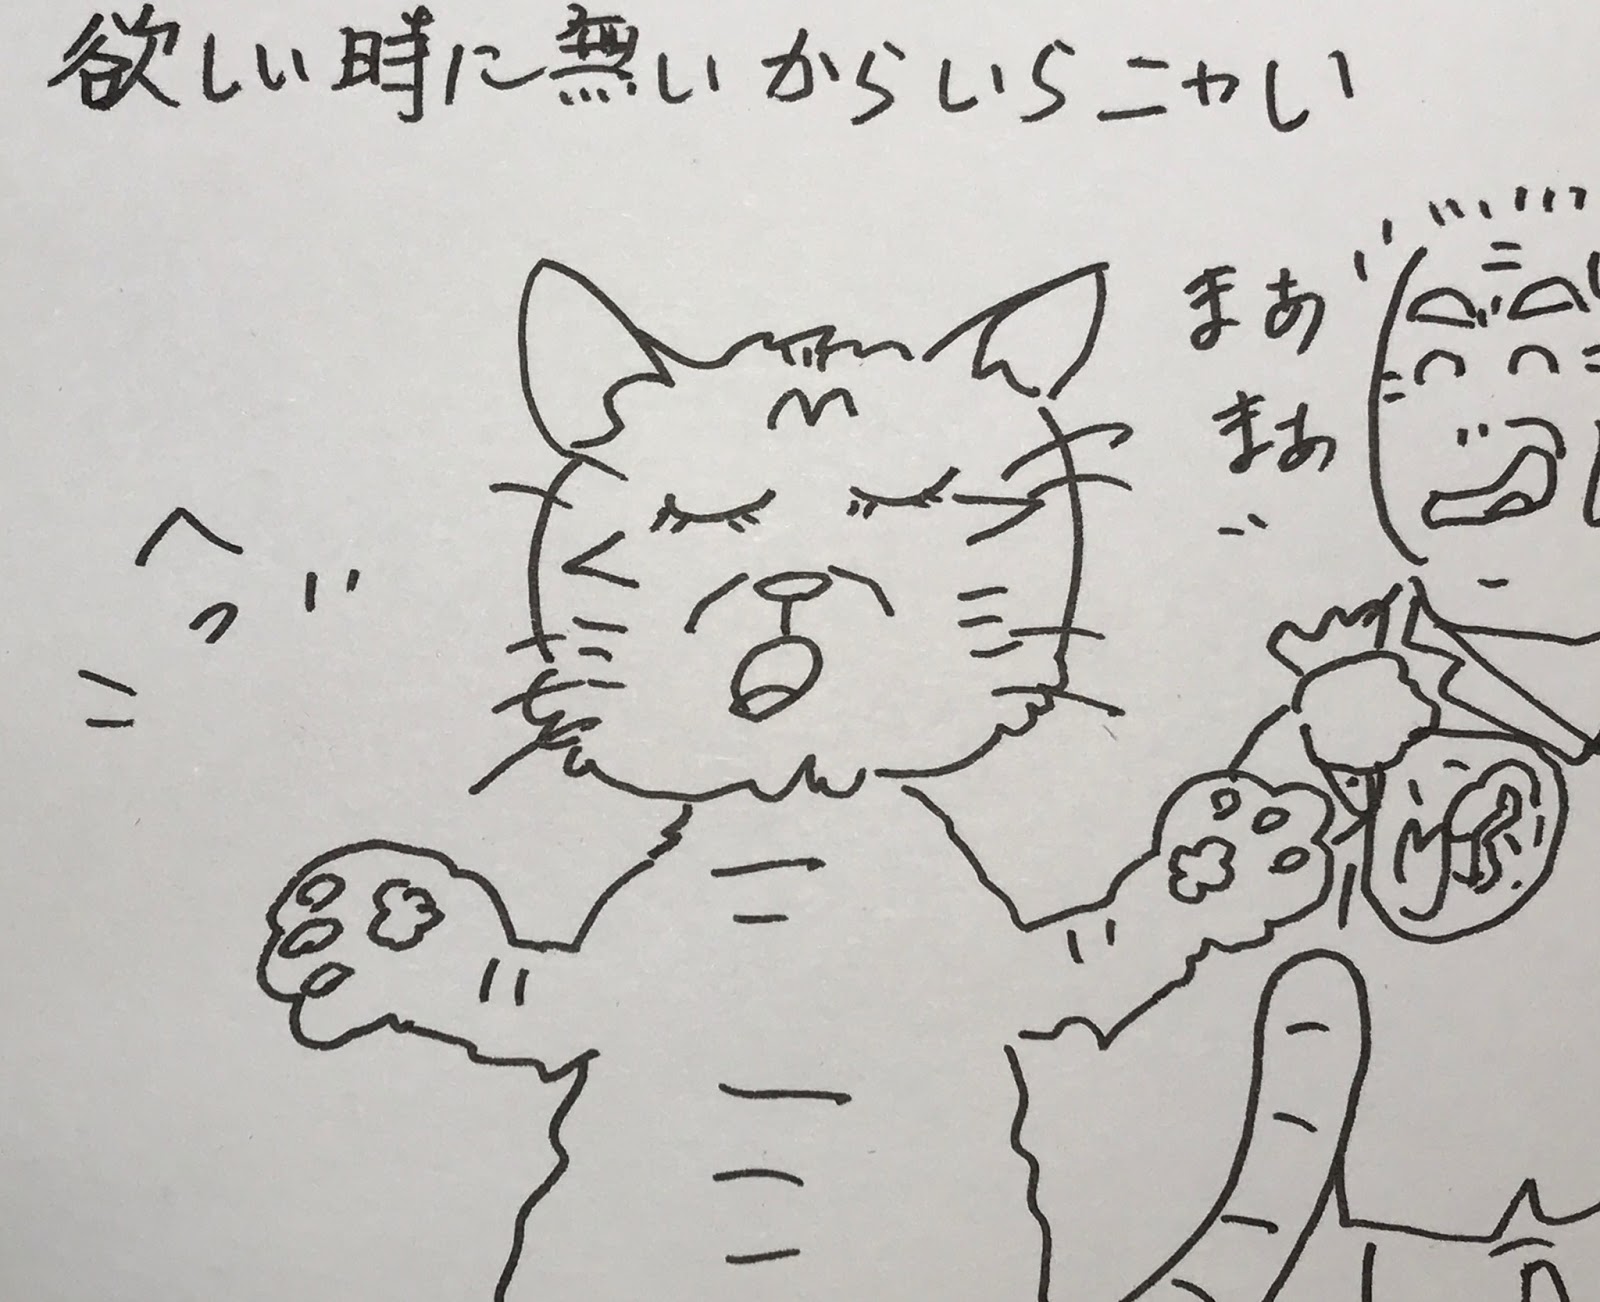 欲しい時に無いからいらニャい
まあ
まあ
へっ